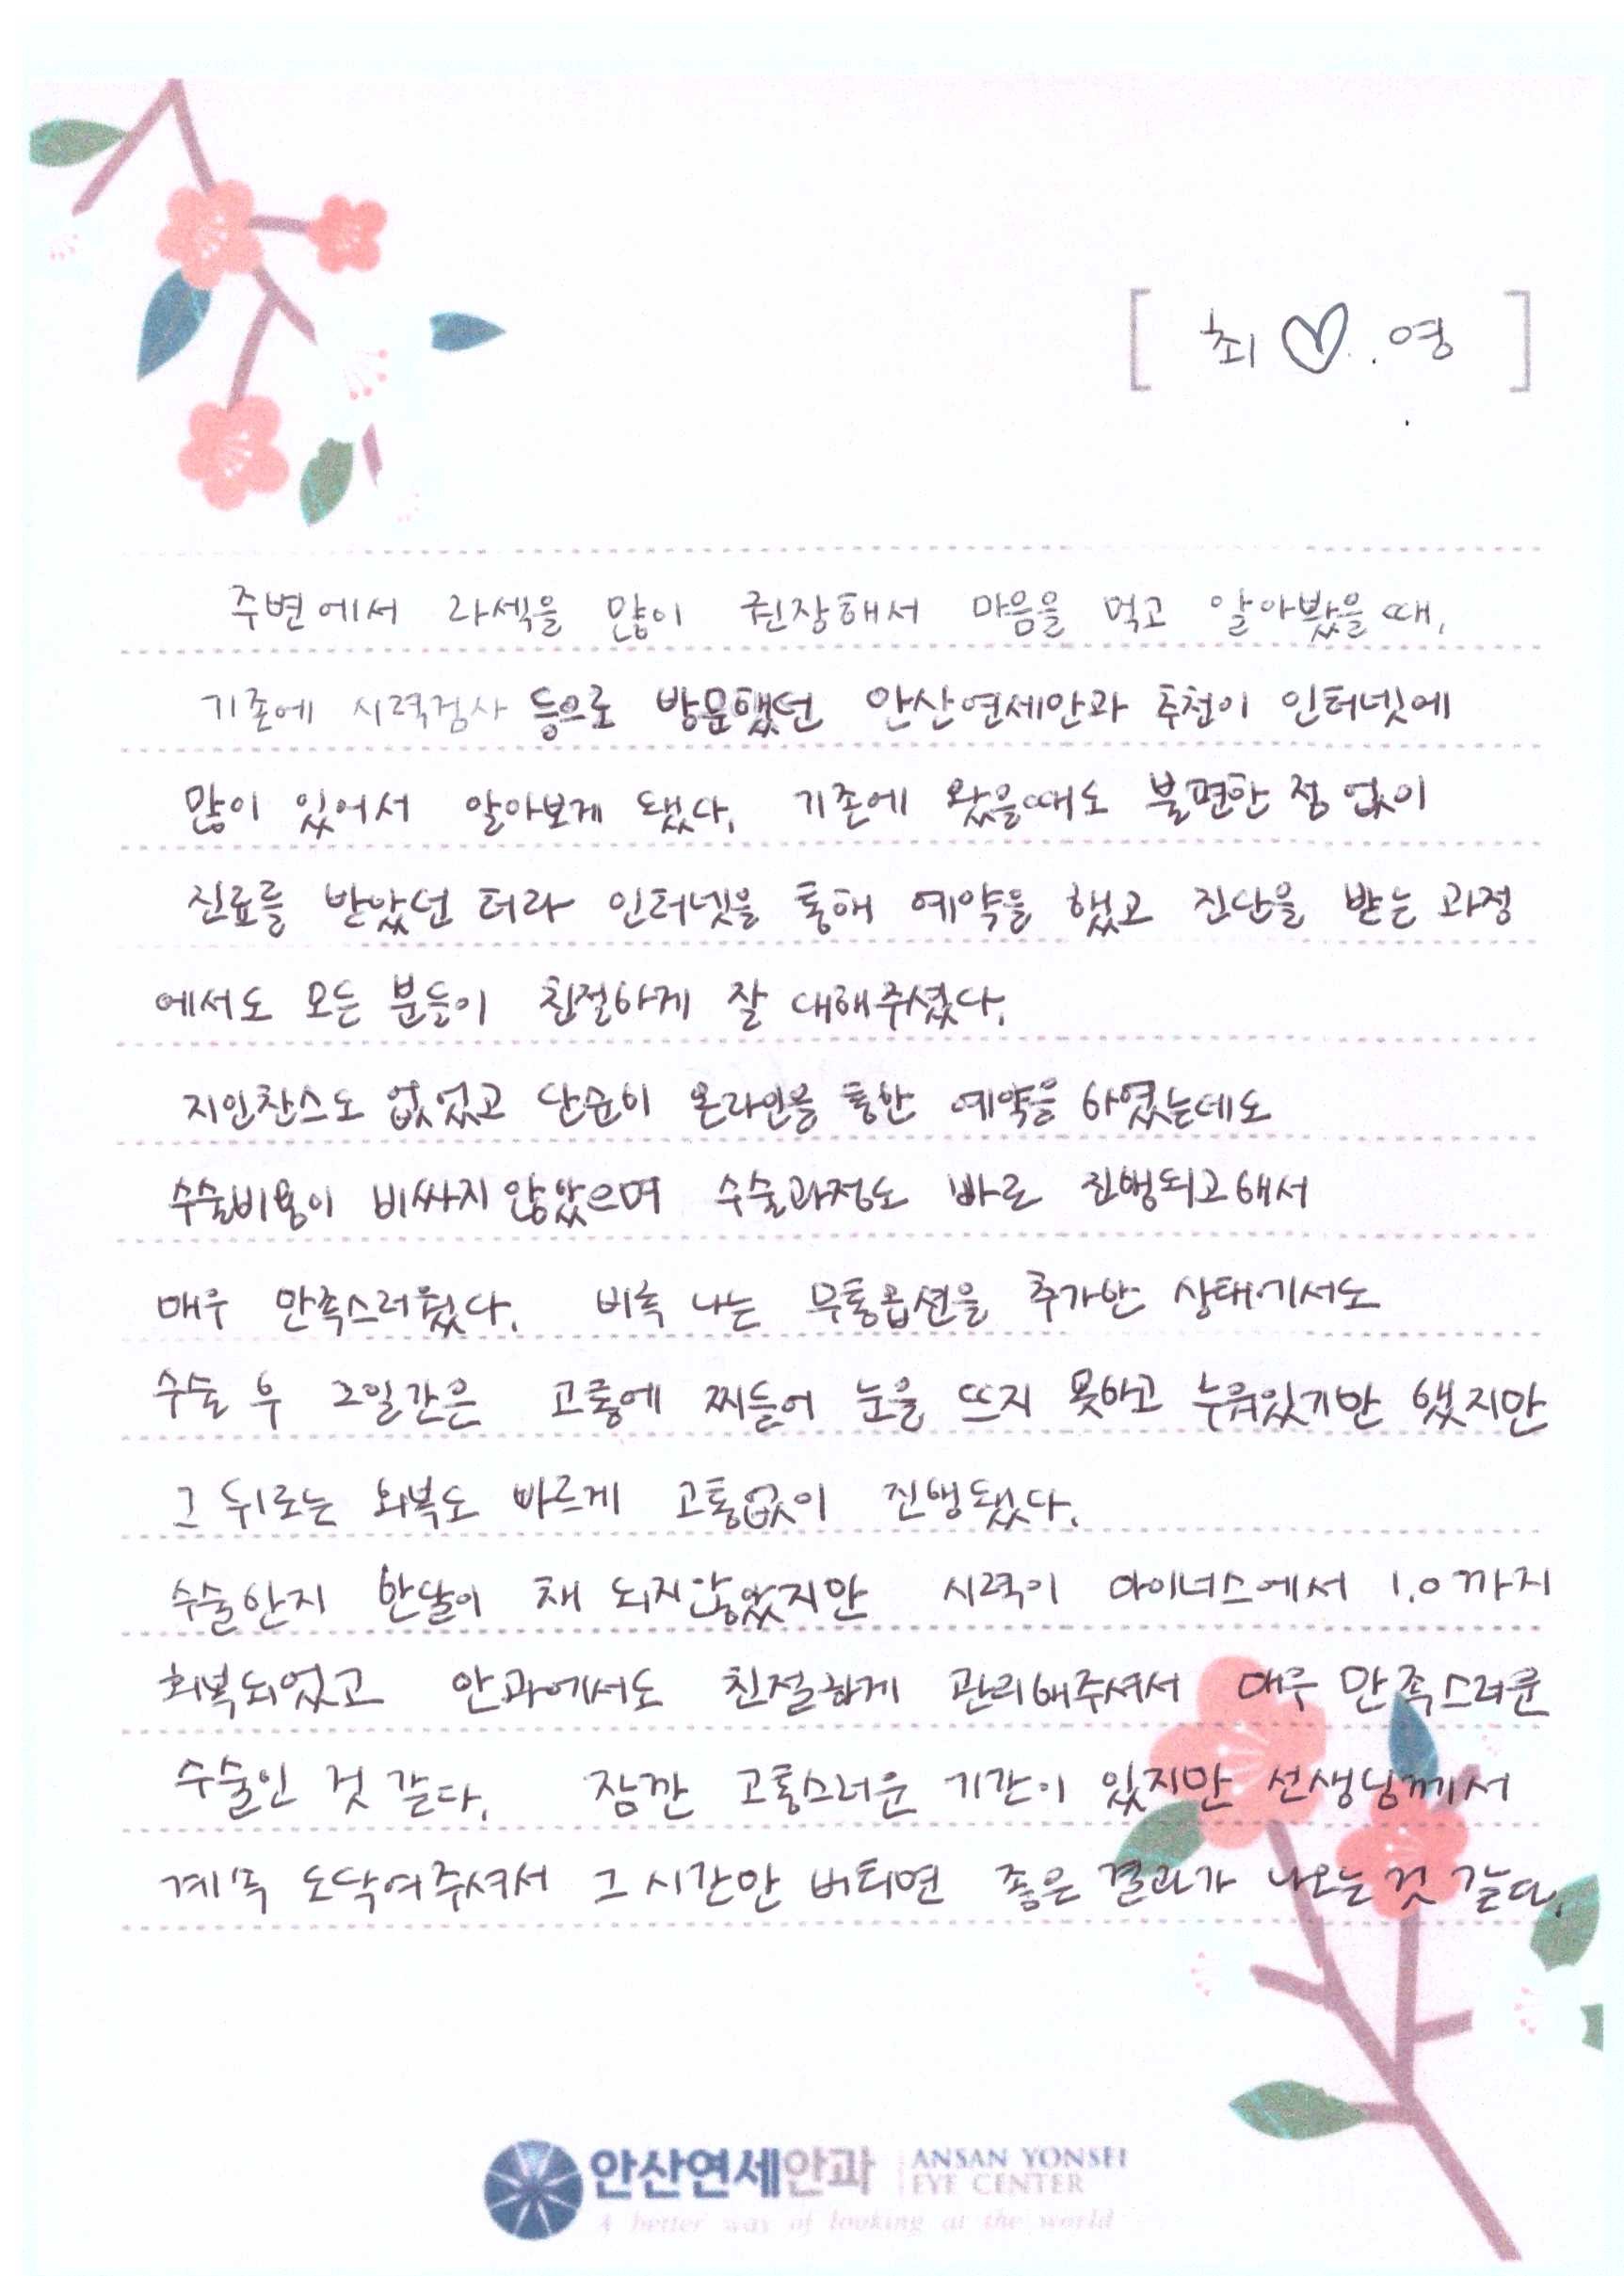 [ 최 ♡. 영 ]
주변에서 라섹을 많이 권장해서 마음을 먹고 알아봤을 때,
기존에 시력검사 등으로 방문했던 안산연세안과 추천이 인터넷에
많이 있어서 알아보게 됐다. 기존에 왔을때도 불편한 점 없이
진료를 받았던 터라 인터넷을 통해 예약을 했고 진단을 받는 과정
에서도 모든 분들이 친절하게 잘 대해주셨다.
지인찬스도 없었고 단순히 온라인을 통한 예약을 하였는데도
수술비용이 비싸지 않았으며 수술과정도 바로 진행되고해서
매우 만족스러웠다. 비록 나는 무통옵션을 추가한 상태에서도
수술 후 2일간은 고통에 찌들어 눈을 뜨지 못하고 누워있기만 했지만
그 뒤로는 회복도 빠르게 고통없이 진행됐다.
수술한지 한달이 채 되지않았지만 시력이 마이너스에서 1.0까지
회복되었고 안과에서도 친절하게 관리해주셔서 매우 만족스러운
수술인 것 같다. 잠깐 고통스러운 기간이 있지만 선생님께서
계속 도닥여주셔서 그 시간만 버티면 좋은 결과가 나오는 것 같다.
안산연세안과 ANSAN YONSEI
EYE CENTER
A better way of looking at the world